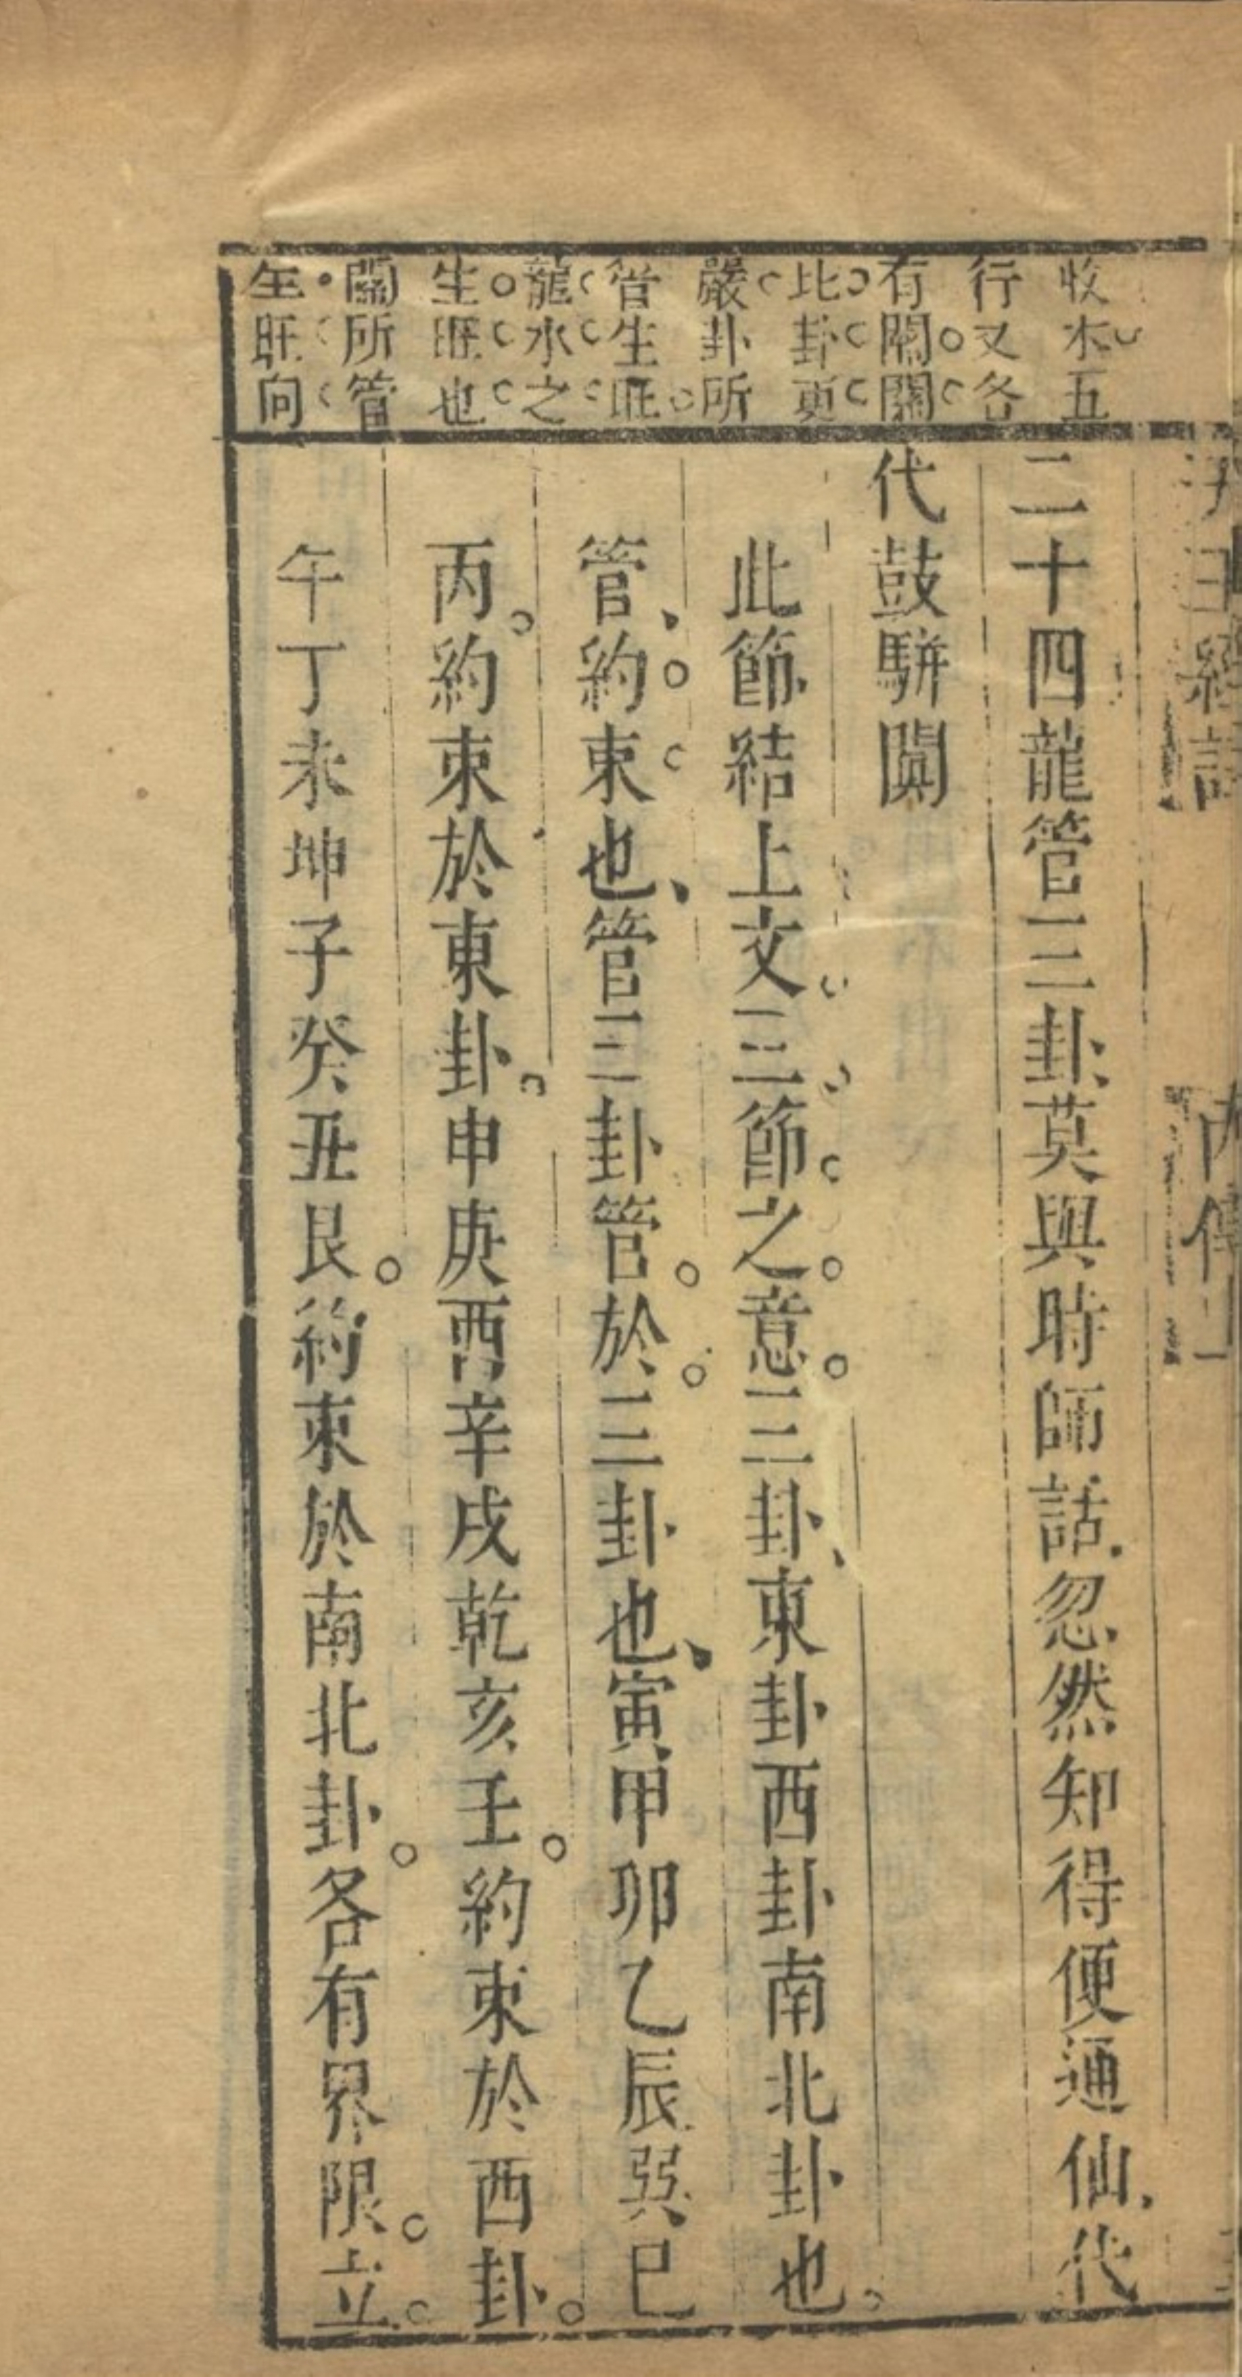 收水五
行又各
有關關
比卦更
嚴卦所
管生旺
龍水之
生旺也
關所管
生旺向
二十四龍管三卦莫與時師話忽然知得便通仙代
代鼓駢闐
此節結上文三節之意三卦東卦西卦南北卦也
管約束也管三卦管於三卦也寅甲卯乙辰巽巳
丙約束於東卦申庚酉辛戌乾亥壬約束於西卦
午丁未坤子癸丑艮約束於南北卦各有界限立